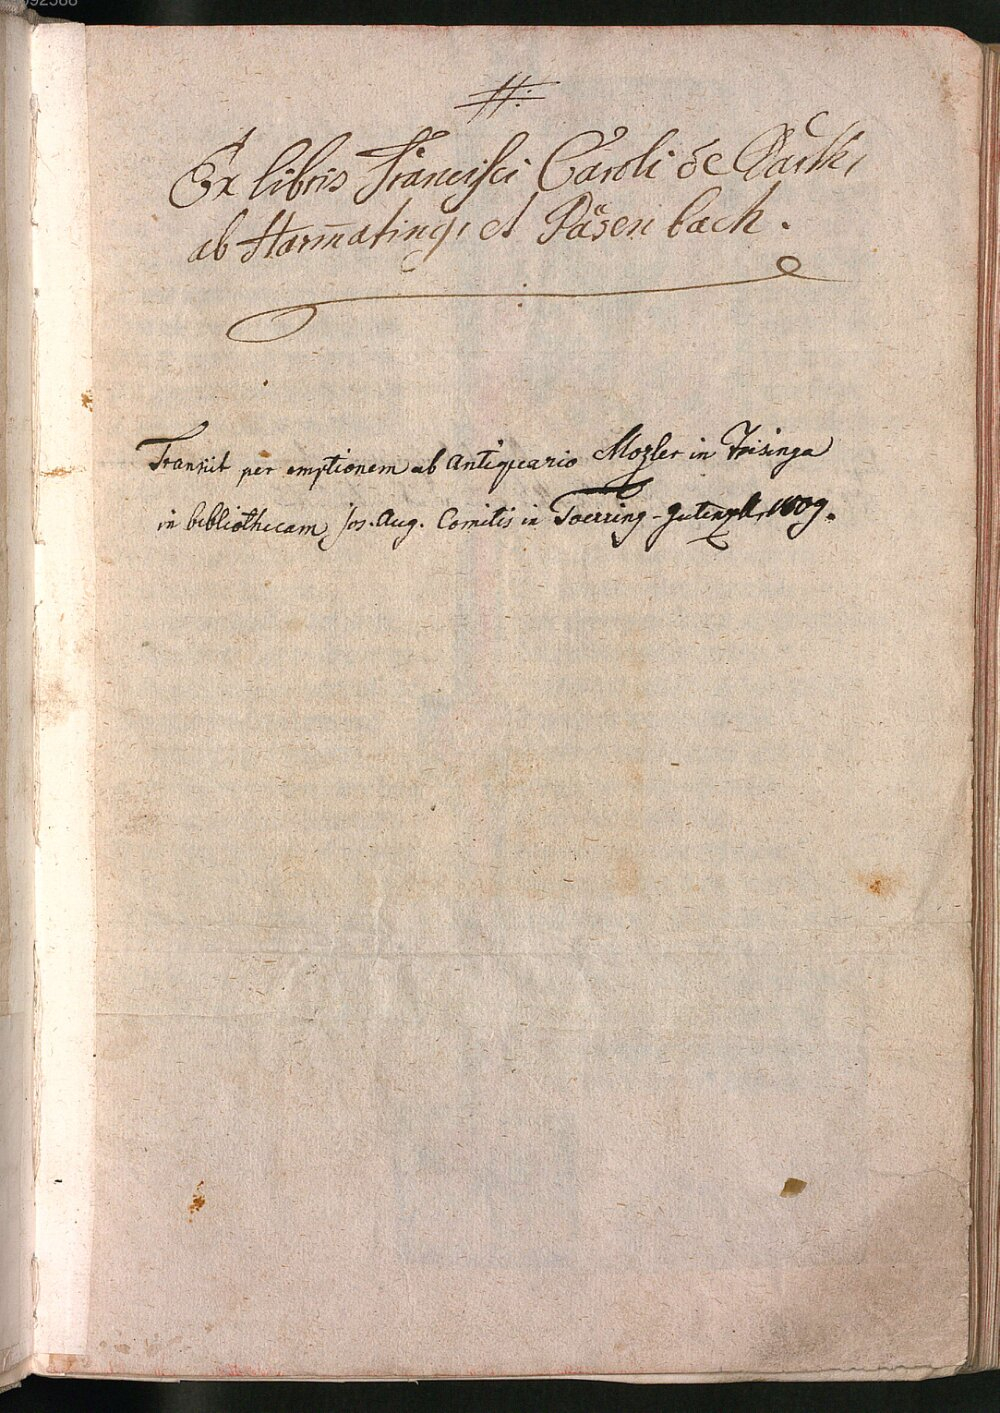 Ex libris Francisci Caroli de Barth,
ab Harm̄ating, et Päsenbach.
Transiit per emptionem ab Antiquario Mozler in Frisinga
in bibliothecam Jos. Aug. Comitis in Toerring-Gutenzell, 1809.